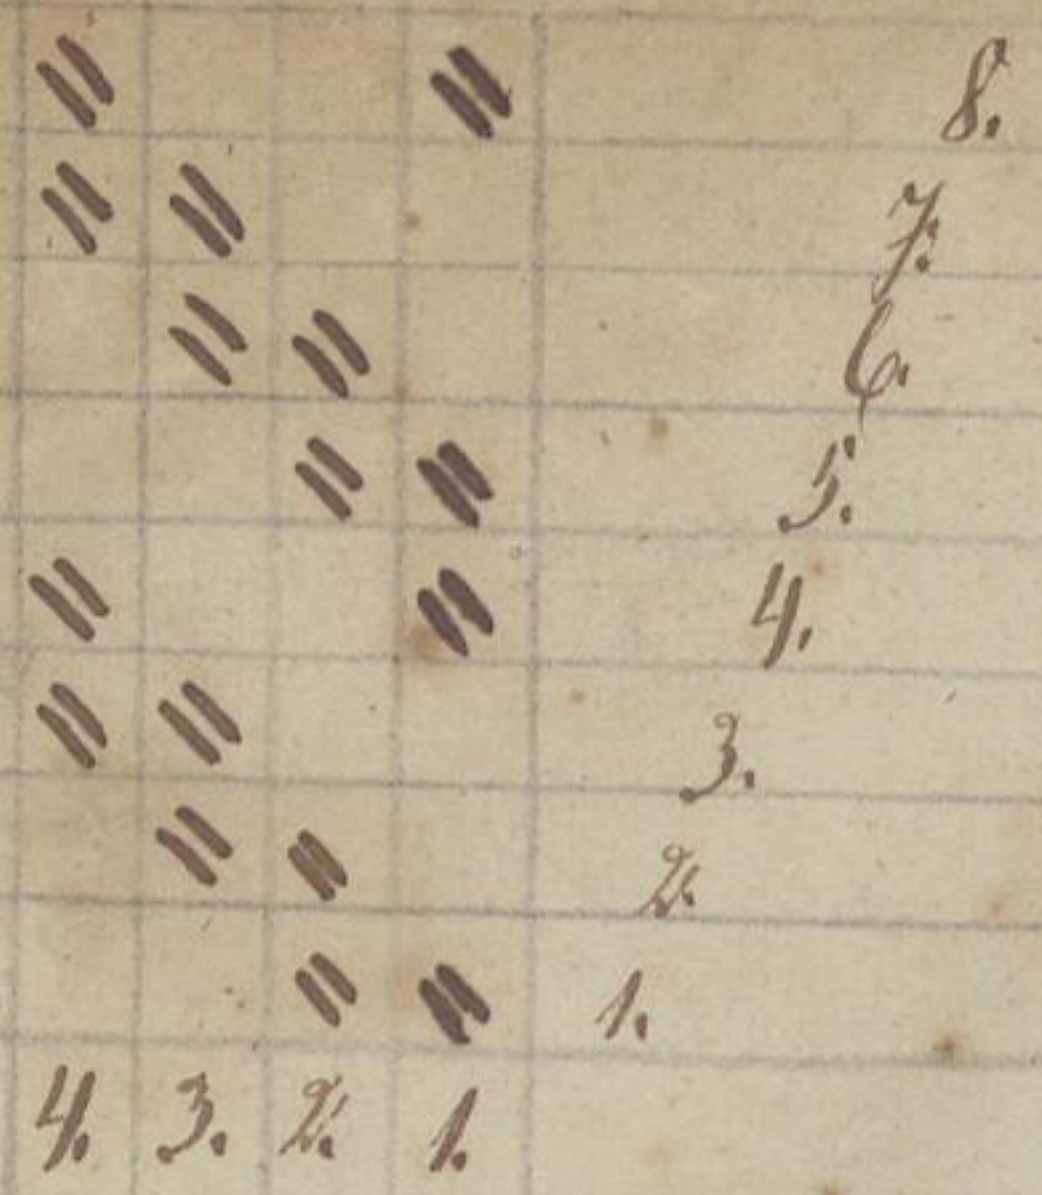 8.
7.
6.
5.
4.
3.
2.
1.
4. 3. 2. 1.